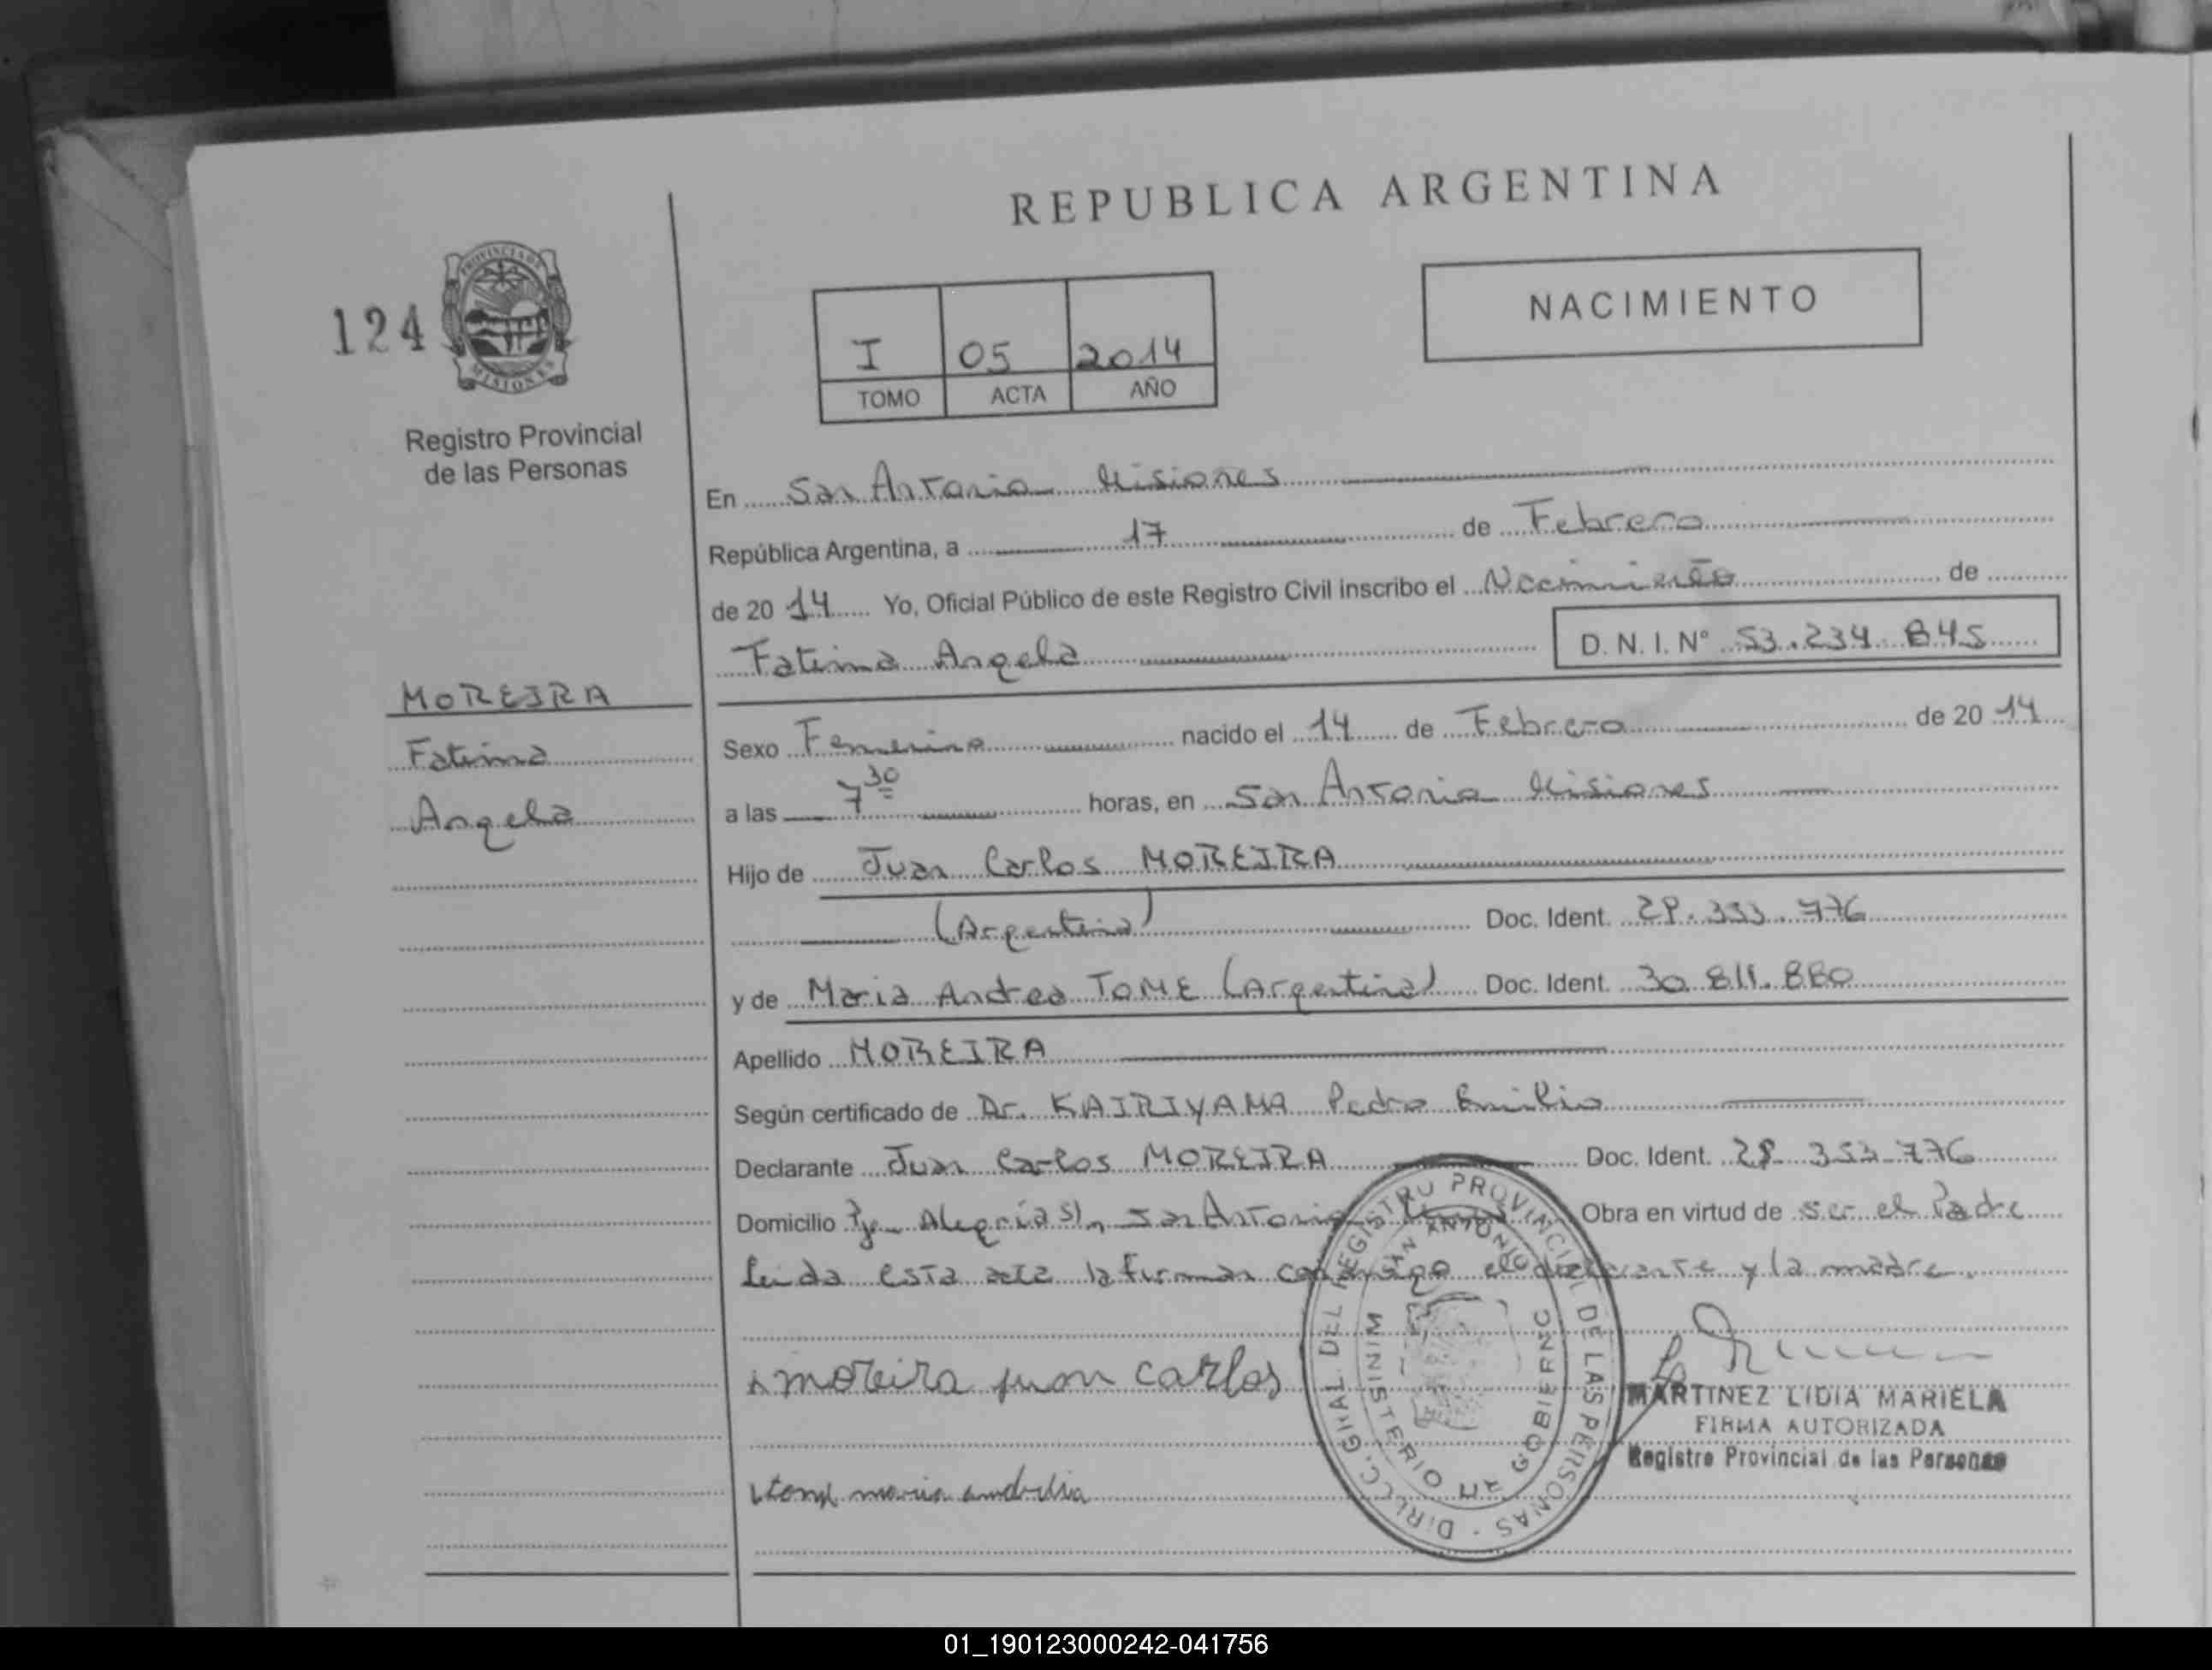 REPUBLICA ARGENTINA
124
PROVINCIA DE
MISIONES
Registro Provincial
de las Personas
NACIMIENTO
I 05 2014
TOMO ACTA AÑO
En San Antonio Misiones
República Argentina, a 17 de Febrero
de 20 14 Yo, Oficial Público de este Registro Civil inscribo el Nacimiento de
Fatima Angela D. N. I. N° 53.234.845
MOREIRA
Fatima
Angela
Sexo Femenino nacido el 14 de Febrero de 20 14
a las 7 30 horas, en San Antonio Misiones
Hijo de Juan Carlos MOREIRA
(Argentino) Doc. Ident. 28.353.776
y de Maria Andrea TOME (Argentina) Doc. Ident. 30.811.880
Apellido MOREIRA
Según certificado de Dr. KAIRIYAMA Pedro Emilio
Declarante Juan Carlos MOREIRA Doc. Ident. 28.353.776
Domicilio Alegría s/n San Antonio Obra en virtud de ser el Padre
Leida esta acta la firman conmigo el declarante y la madre.
moreira juan carlos
tome maria andreia
DIRECC. GRAL. DEL REGISTRO PROVINCIAL DE LAS PERSONAS
SAN ANTONIO
MINISTERIO DE GOBIERNO
MARTINEZ LIDIA MARIELA
FIRMA AUTORIZADA
Registro Provincial de las Personas
01_190123000242-041756